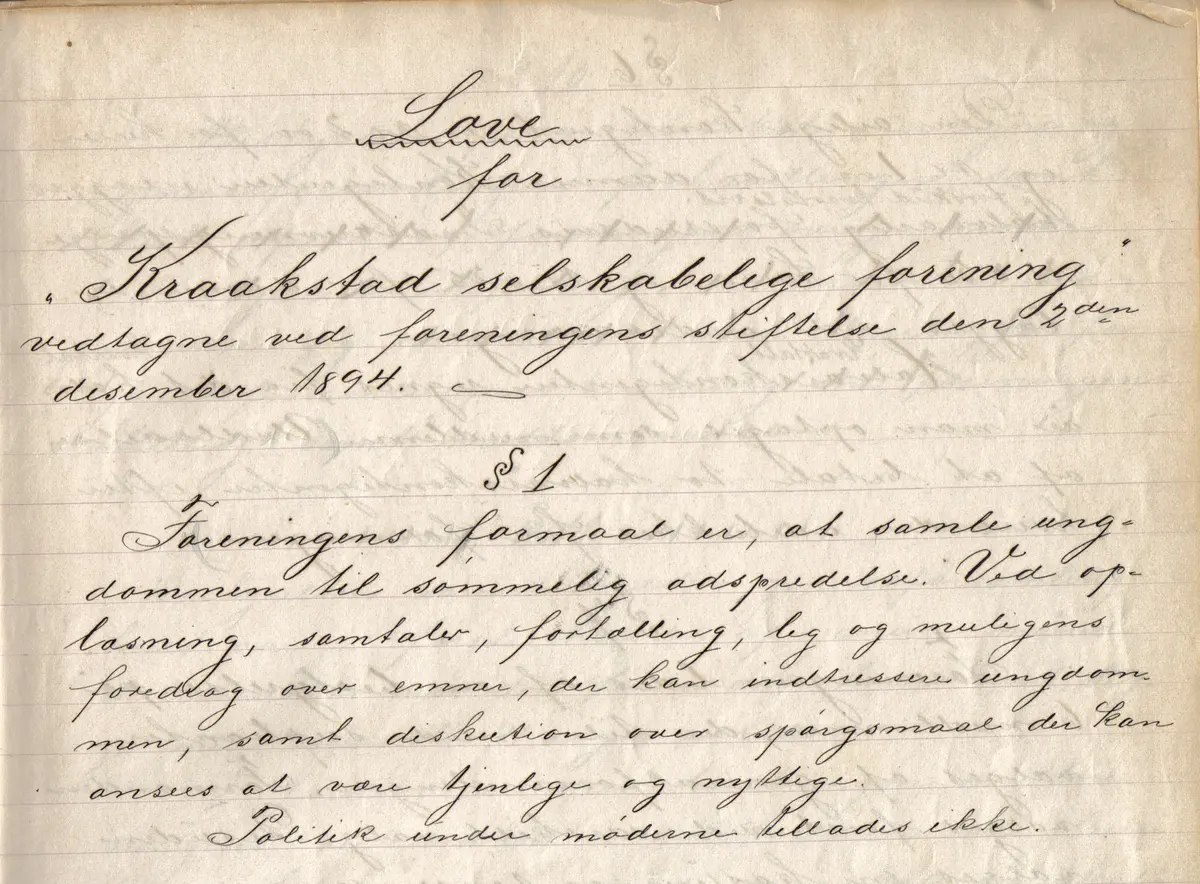 Love
for
"Kraakstad selskabelige forening"
vedtagne ved foreningens stiftelse den 2den
desember 1894. —
§ 1
Foreningens formaal er, at samle ung-
dommen til sømmelig adspredelse. Ved op-
læsning, samtaler, fortælling, leg og muligens
foredrag over emner, der kan indtressere ungdom-
men, samt diskution over spørgsmaal der kan
ansees at være tjenlege og nyttige.
Politik under møderne tillades ikke.